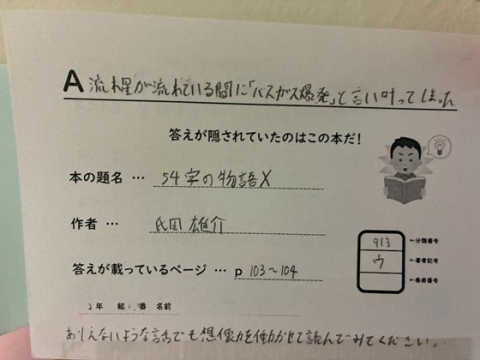 A 流れ星が流れている間に「バスガス爆発」と言い切ってしまった
答えが隠されていたのはこの本だ!
本の題名 … 54字の物語X
作者 … 氏田雄介
答えが載っているページ … p 103〜104
913 ←分類番号
ウ ←著者記号
←巻冊番号
年 組 番 名前
ありえないような話でも想像力を働かせて読んでみてください。